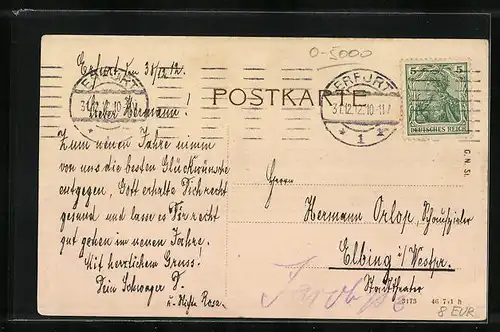 Erfurt den 30/12 12.
0-5000
ERFURT
31.12.12.10-11V
* 1 *
5 5
DEUTSCHES REICH
G. N. Sl.
POSTKARTE
Lieber Hermann!
Zum neuen Jahre nimm
von uns die besten Glückwünsche
entgegen, Gott erhalte Dich recht
gesund und lasse es Dir recht
gut gehen im neuen Jahre,
Mit herzlichem Gruss.
Dein Schwager D.
u. Nichte Rosa.
Herrn
Hermann Orlop, Schauspieler
Elbing i/Westpr.
Stadttheater
3173 46 7/1 h
8 EUR.